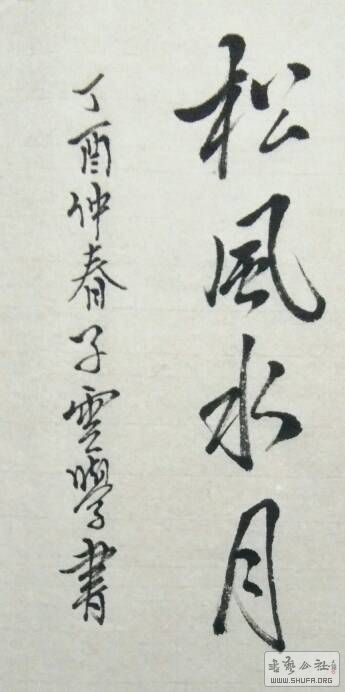 松風水月
丁酉仲春子雲學書
书艺公社
WWW.SHUFA.ORG